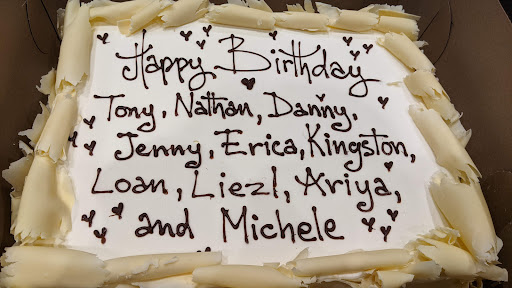 Happy Birthday
Tony, Nathan, Danny,
Jenny, Erica, Kingston,
Loan, Liezl, Ariya,
and Michele